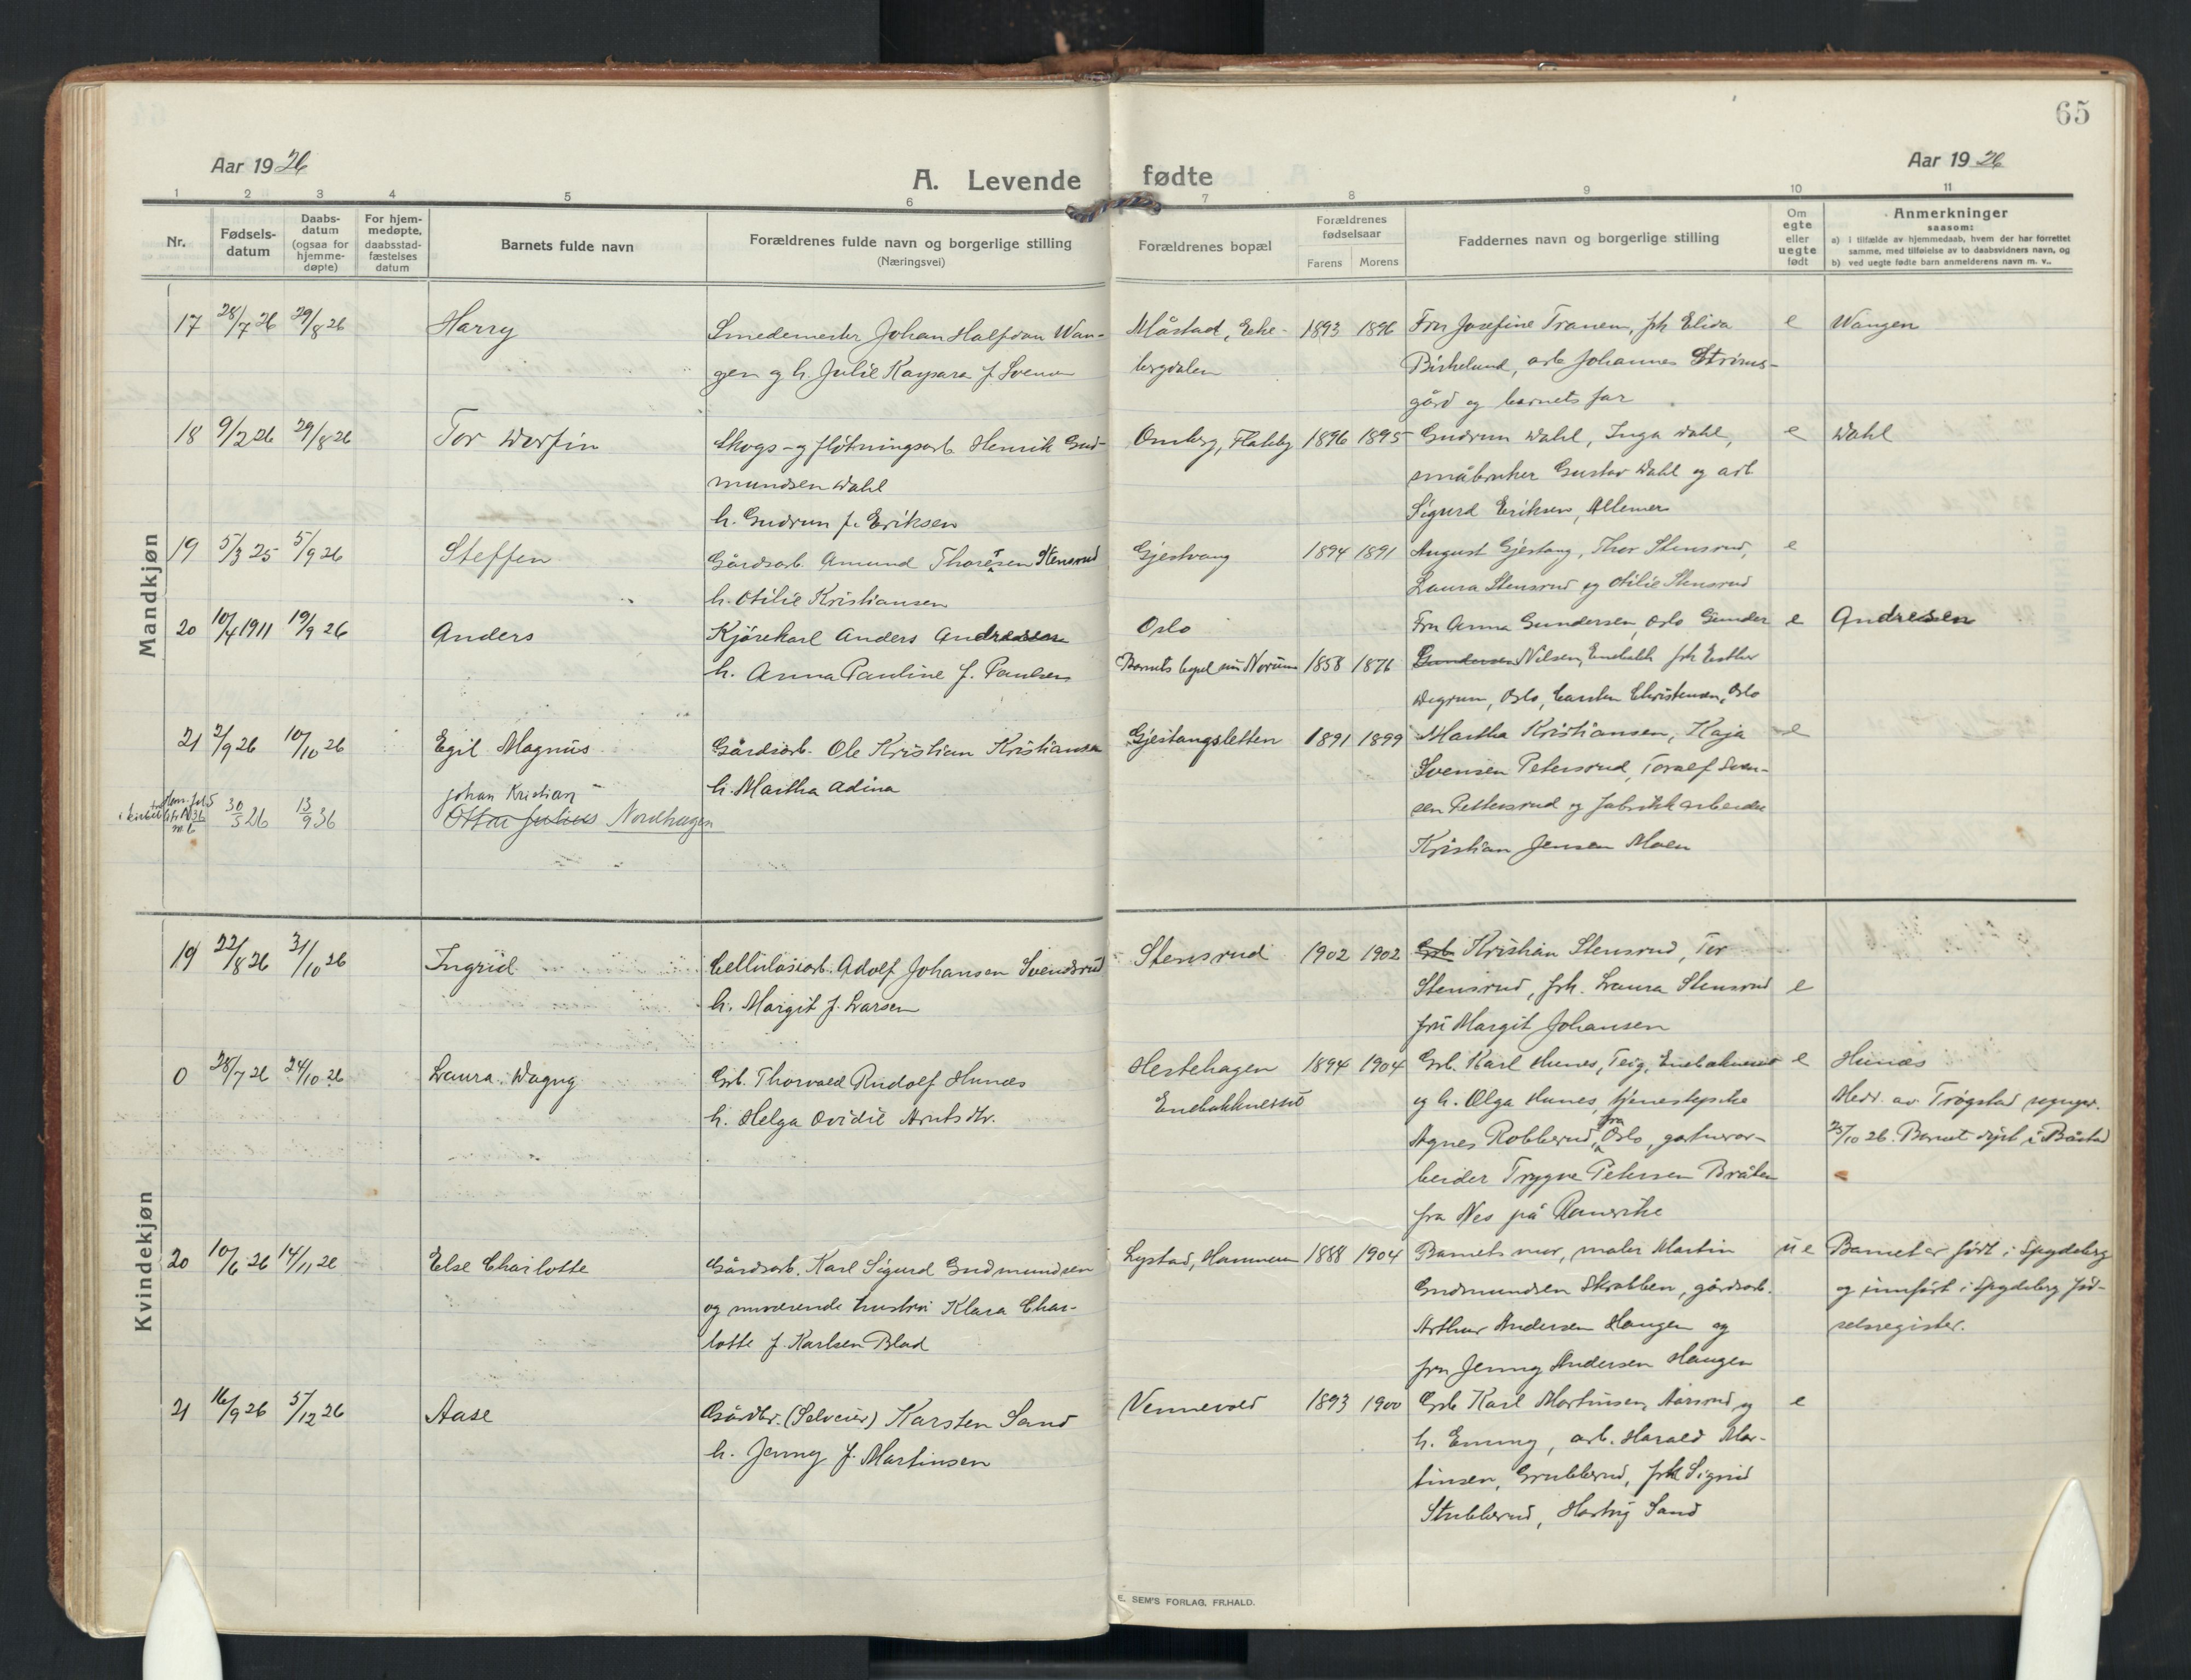 65
Aar 1926
A. Levende fødte
Aar 1926
1 2 3 4 5 6 7 8 9 10 11
Nr.
Fødsels-
datum
Daabs-
datum
(ogsaa for
hjemme-
døpte)
For hjem-
medøpte,
daabsstad-
fæstelses
datum
Barnets fulde navn
Forældrenes fulde navn og borgerlige stilling
(Næringsvei)
Forældrenes bopæl
Forældrenes
fødselsaar
Farens Morens
Faddernes navn og borgerlige stilling
Om
egte
eller
uegte
født
Anmerkninger
saasom:
a) i tilfælde av hjemmedaab, hvem der har forrettet
samme, med tilføielse av to daabsvidners navn, og
b) ved uegte fødte barn anmelderens navn m. v..
Mandkjøn
17 28/7 26 29/8 26 Harry Smedemester Johan Halfdan Wan- Måstad, Eke- 1893 1896 Fru Josefine Tranem, frk Elida e Wangen
gen og h. Julie Kaspara f. Svensen bergdalen Birkelund, arb Johannes Strøms-
gård og barnets far
18 9/2 26 29/8 26 Tor Dorfin Skogs- og fløtningsarb Henrik Gud- Omberg, Flateby 1896 1895 Gudrun Dahl, Inga Dahl, e Dahl
mundsen Dahl småbruker Gustav Dahl og arb
h. Gudrun f. Eriksen Sigurd Eriksen, Allemer
19 5/3 25 5/9 26 Steffen Gårdsarb. Amund Thoresen Stensrud Gjestvang 1894 1891 August Gjestang, Thor Stensrud, e
h. Otilie Kristiansen Laura Stensrud og Otilie Stensrud
20 10/4 1911 19/9 26 Anders Kjørekarl Anders Andresen Oslo Fru Anna Gundersen, Oslo Gunder e Andresen
h. Anna Pauline f. Paulsen Barnets bopel nu Norum 1858 1876 Gundersen Nilsen, Enebakk frk Esther
Oslo, Carsten Christensen, Oslo
21 2/9 26 10/10 26 Egil Magnus Gårdsarb. Ole Kristian Kristiansen Gjestangsletten 1891 1899 Martha Kristiansen, Kaja e
h. Martha Adina Svensen Petersrud, Toralf Sven-
sen Pettersrud og fabrikkarbeider
Kristian Jensen Moen
30/5 26 13/9 36 Johan Kristian
Ottar Julius Nordhagen
Kvindekjøn
19 22/8 26 31/10 26 Ingrid Cellulosearb. Adolf Johansen Svendsrud Stensrud 1902 1902 Grb Kristian Stensrud, Tor
h. Margit f. Larsen Stensrud, frk. Laura Stensrud e
fru Margit Johansen
0 28/7 26 24/10 26 Laura Dagny Grb. Thorvald Rudolf Hunæs Hestehagen 1894 1904 Grb. Karl Hunes, Teig, Enebakneset e Hunæs
h. Helga Ovidie Arntsdtr. Enebakkneset og h. Olga Hunes, tjenestepike Medd. av Trøgstad sogneper.
Agnes Robberud, fra Oslo, gartnerar- 25/10 26. Barnet døpt i Båstad
beider Trygve Petersen Bråten
fra Nes på Romerike
20 10/6 26 14/11 26 Else Charlotte Gårdsarb. Karl Sigurd Gudmundsen Lystad, Hammeren 1888 1904 Barnets mor, maler Martin u e Barnet er født i Spydeberg
og nuværende hustru Klara Char- Gudmundsen Skrabben, gårdsarb. og innført i Spydeberg fød-
lotte f. Karlsen Blad Arthur Andersen Haugen og selsregister.
fru Jenny Andersen Haugen
21 16/9 26 5/12 26 Aase Gårdbr. (Selveier) Karsten Sand Vennevold 1893 1900 Grb Karl Martinsen, Aarsrud og e
h. Jenny f. Martinsen h. Emmy, arb. Harald Mar-
tinsen, Grubberud, frk Sigrid
Stubberud, Hartvig Sand
E. SEM'S FORLAG, FR.HALD.